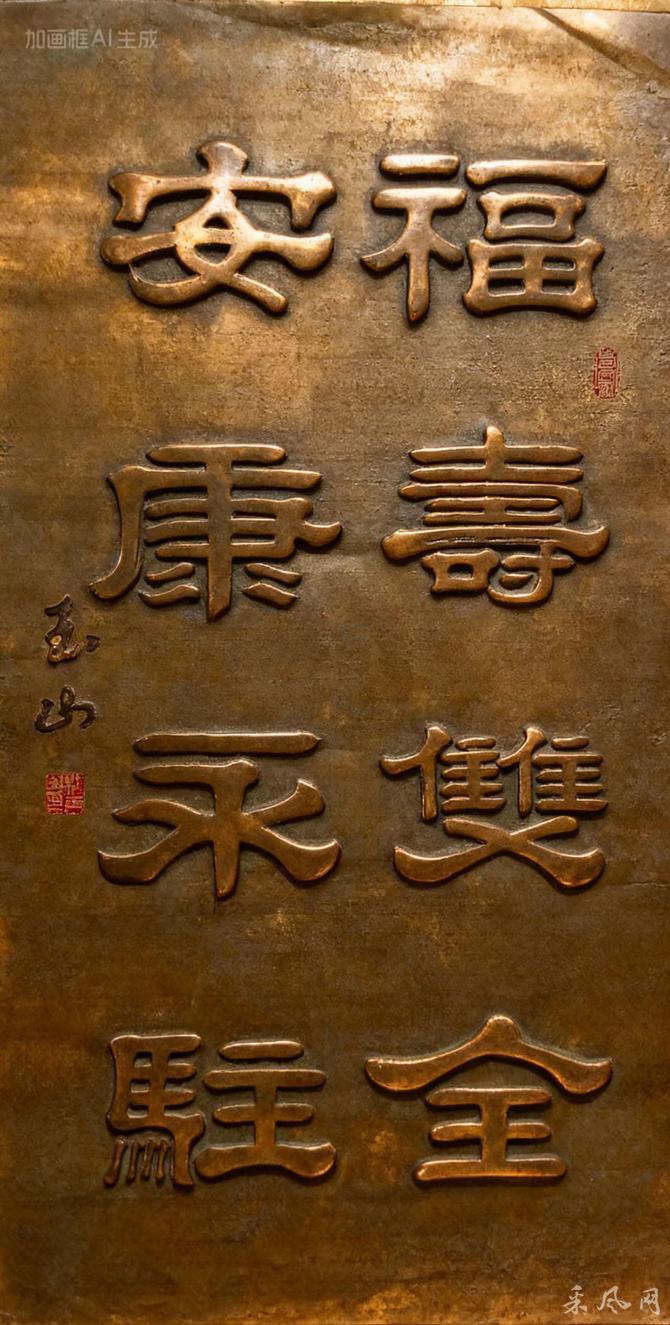 福壽雙全
安康永駐
玉山
加画框AI生成
采风网